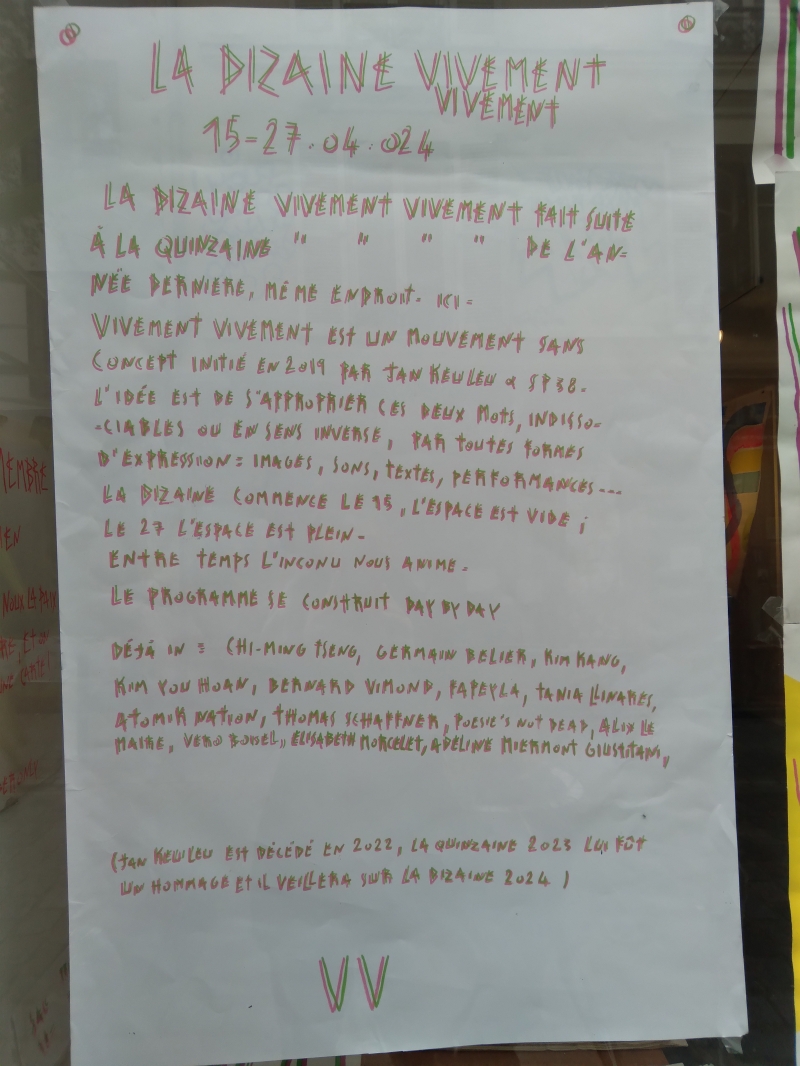 LA DIZAINE VIVEMENT
VIVEMENT
15-27.04.024
LA DIZAINE VIVEMENT VIVEMENT FAIT SUITE
À LA QUINZAINE " " " " DE L'AN-
NÉE DERNIERE, MÊME ENDROIT. ICI.
VIVEMENT VIVEMENT EST UN MOUVEMENT SANS
CONCEPT INITIÉ EN 2019 PAR JAN KEULEU & SP38.
L'IDÉE EST DE S'APPROPRIER CES DEUX MOTS, INDISSO-
-CIABLES OU EN SENS INVERSE, PAR TOUTES FORMES
D'EXPRESSION: IMAGES, SONS, TEXTES, PERFORMANCES...
LA DIZAINE COMMENCE LE 15, L'ESPACE EST VIDE ;
LE 27 L'ESPACE EST PLEIN.
ENTRE TEMPS L'INCONU NOUS ANIME.
LE PROGRAMME SE CONSTRUIT DAY BY DAY
DÉJÀ IN : CHI-MING TSENG, GERMAIN BELIER, KIM KANG,
KIM YOU HOAN, BERNARD VIMOND, FAPEYLA, TANIA LLINARES,
ATOMIK NATION, THOMAS SCHAFFNER, POESIE'S NOT DEAD, ALIX LE
MAIRE, VERO BOREL, ELISABETH MORCELET, ADELINE MIERMONT GIUSTINATI,
(JAN KEULEU EST DÉCÉDÉ EN 2022, LA QUINZAINE 2023 LUI FÛT
UN HOMMAGE ET IL VEILLERA SUR LA DIZAINE 2024 )
VV